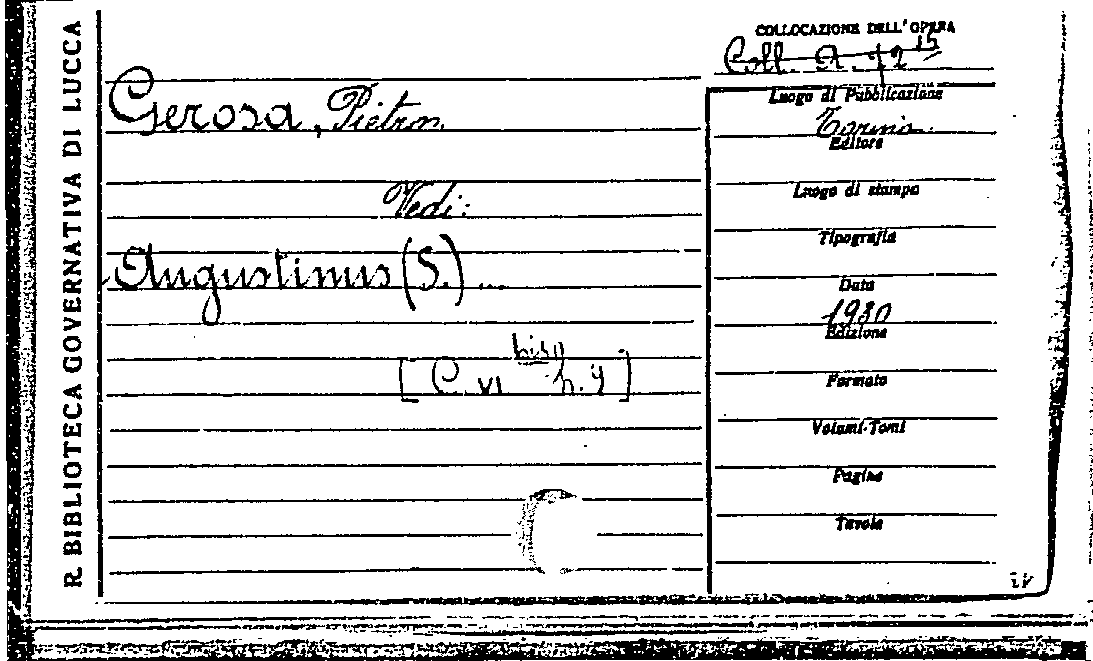 R. BIBLIOTECA GOVERNATIVA DI LUCCA
Gerosa, Pietro.
Vedi:
Augustinus (S.) ...
[C. VI n. 4]
COLLOCAZIONE DELL'OPERA
Coll. A. 72 15
Luogo di Pubblicazione
Torino.
Editore
Luogo di stampa
Tipografia
Data
1930
Edizione
Formato
Volumi-Tomi
Pagine
Tavole